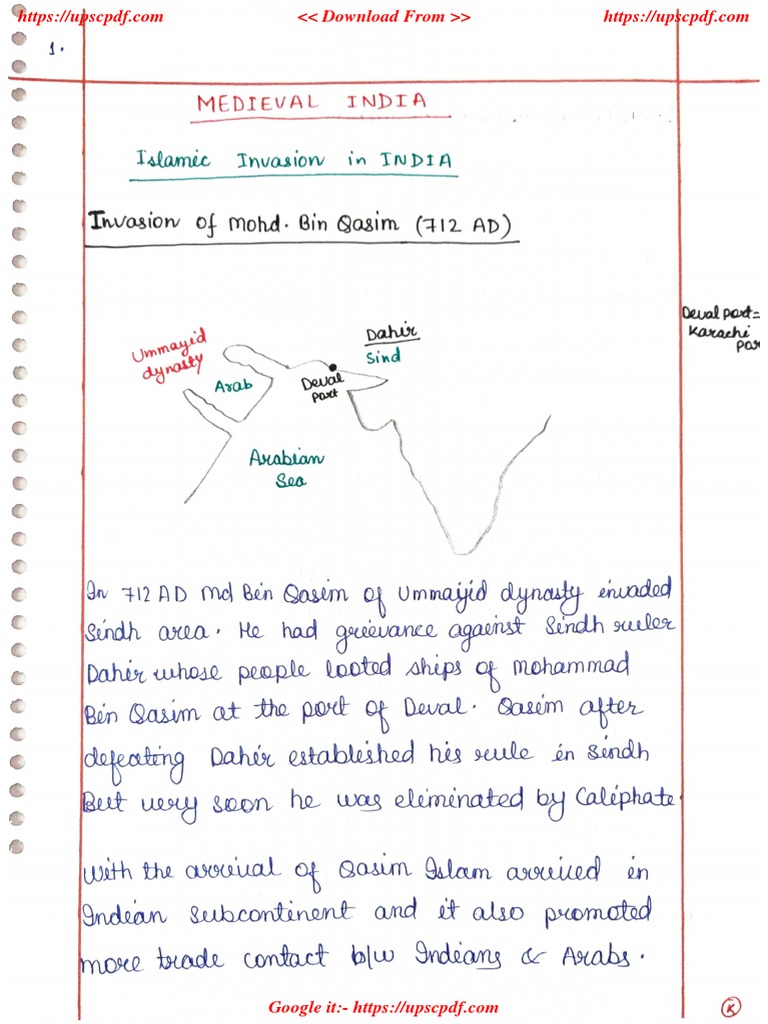 https://upscpdf.com << Download From >> https://upscpdf.com
1.
MEDIEVAL INDIA
Islamic Invasion in INDIA
Invasion of Mohd. Bin Qasim (712 AD)
Deval Port =
Karachi
Por
Ummayid
dynasty
Arab
Deval
Port
Dahir
Sind
Arabian
Sea
In 712 AD Md Bin Qasim of Ummayid dynasty invaded
Sindh area. He had grievance against Sindh ruler
Dahir whose people looted ships of Mohammad
Bin Qasim at the port of Deval. Qasim after
defeating Dahir established his rule in Sindh
But very soon he was eliminated by Caliphate.
With the arrival of Qasim Islam arrived in
Indian Subcontinent and it also promoted
more trade contact b/w Indians & Arabs.
K
Google it:- https://upscpdf.com